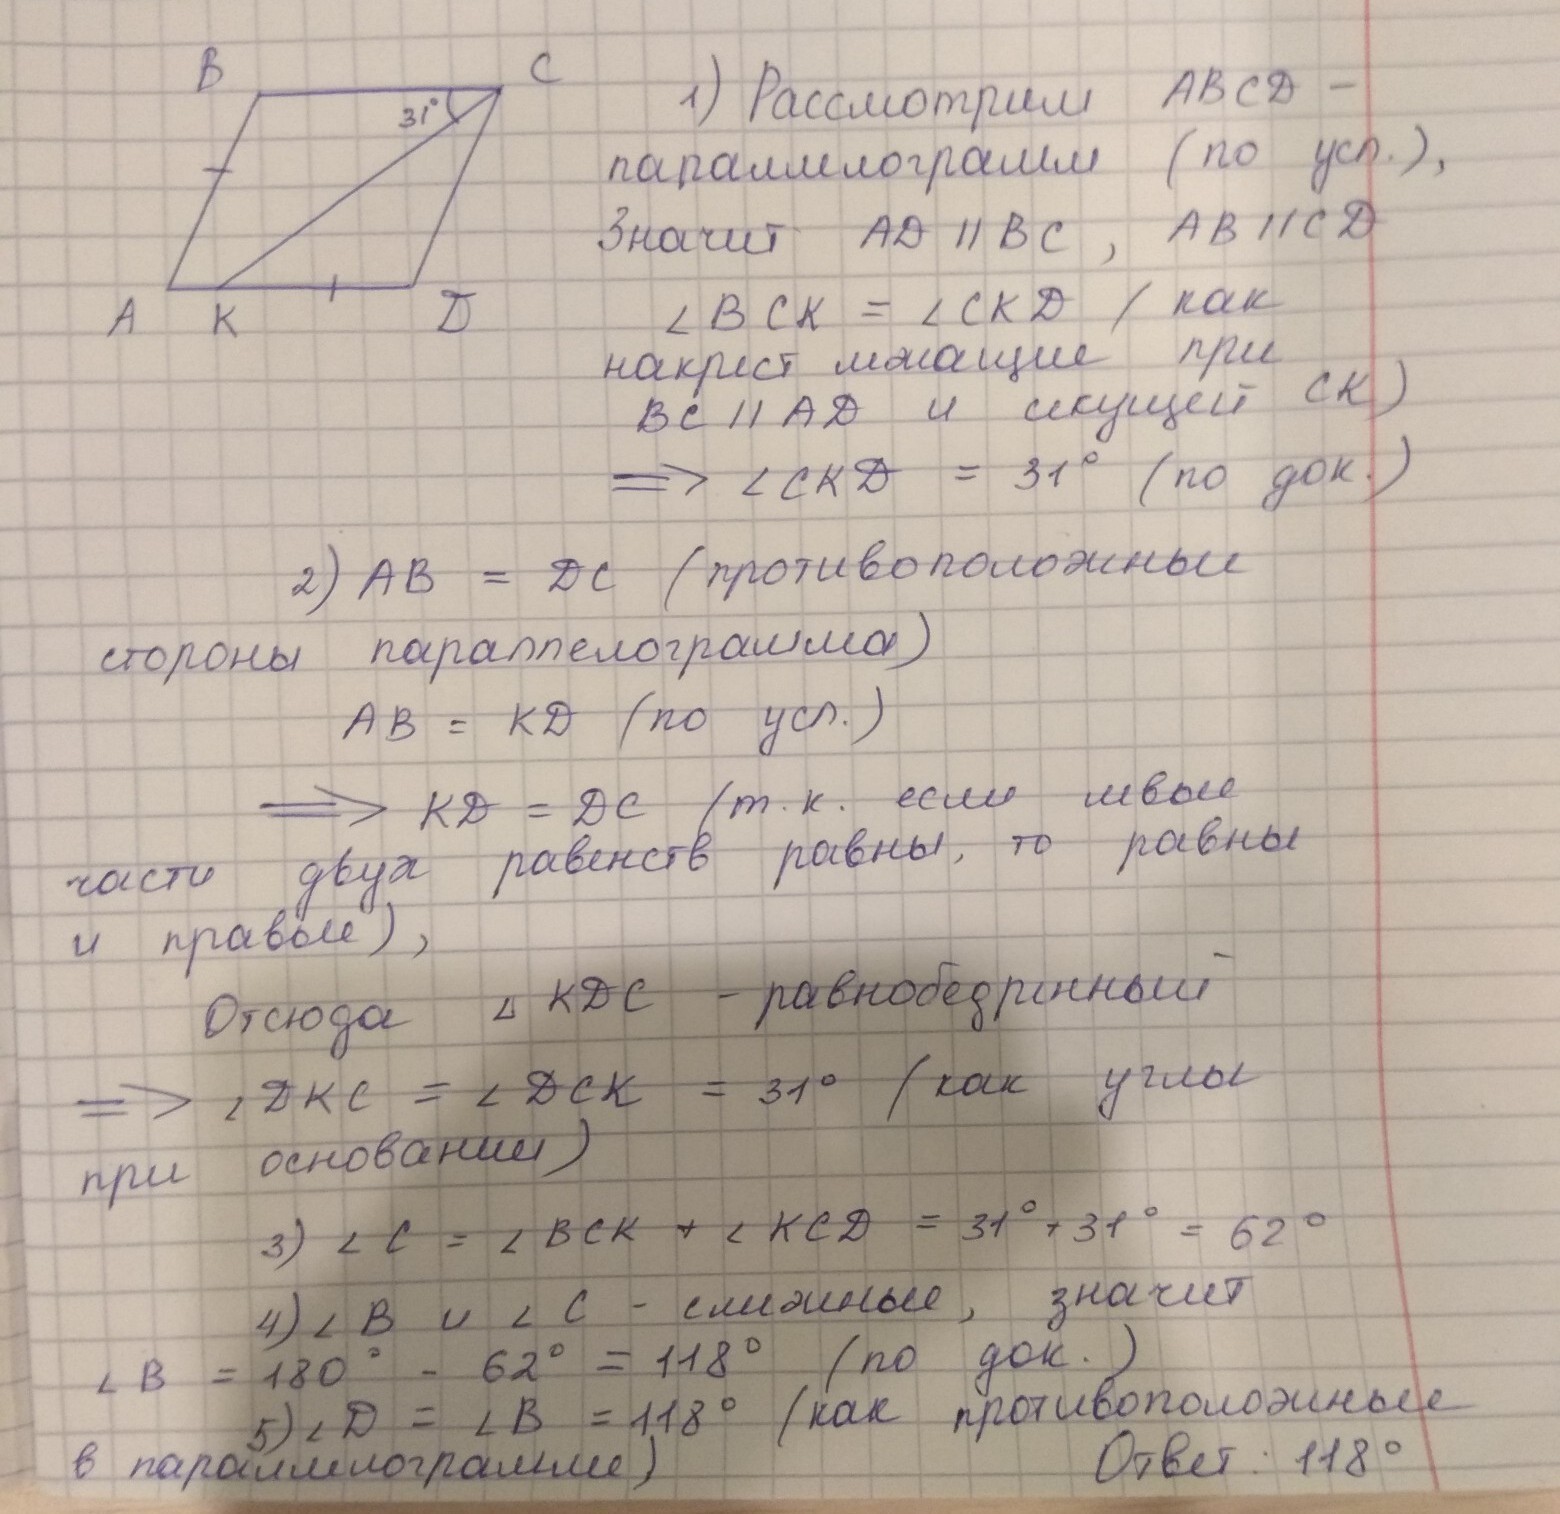 B C
31°
A K D
1) Рассмотрим ABCD -
параллелограмм (по усл.),
Значит AD || BC, AB || CD
∠BCK = ∠CKD (как
накрест лежащие при
BC || AD и секущей CK)
=> ∠CKD = 31° (по док.)
2) AB = DC (противоположные
стороны параллелограмма)
AB = KD (по усл.)
=> KD = DC (т.к. если левые
части двух равенств равны, то равны
и правые),
Отсюда △KDC - равнобедренный
=> ∠DKC = ∠DCK = 31° (как углы
при основании)
3) ∠C = ∠BCK + ∠KCD = 31° + 31° = 62°
4) ∠B и ∠C - смежные, значит
∠B = 180° - 62° = 118° (по док.)
5) ∠D = ∠B = 118° (как противоположные
в параллелограмме) Ответ: 118°